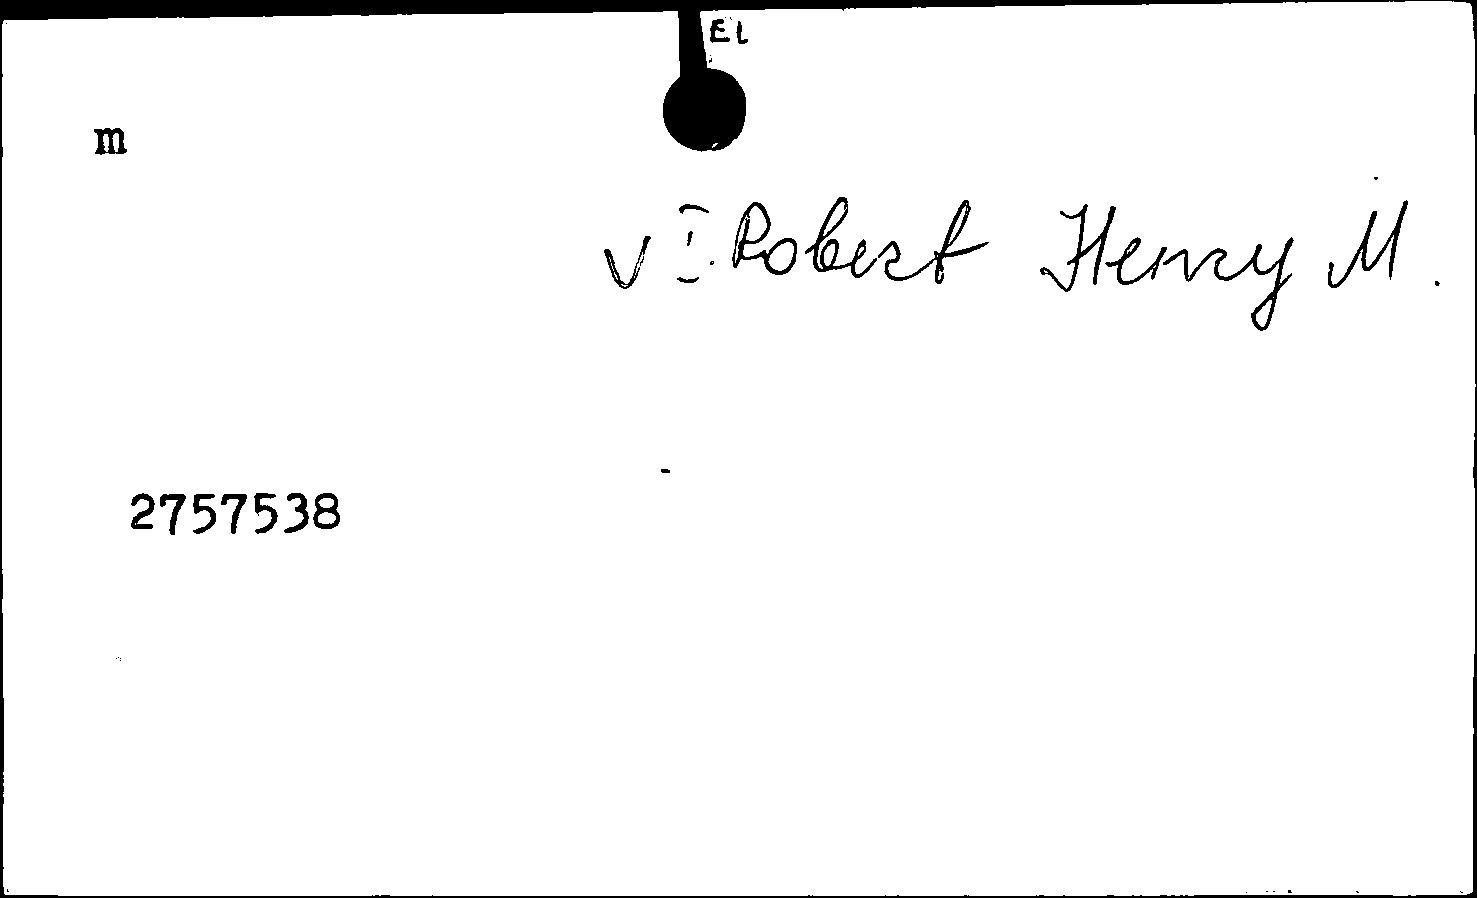 EL
m
√ I. Robert Henry M.
2757538